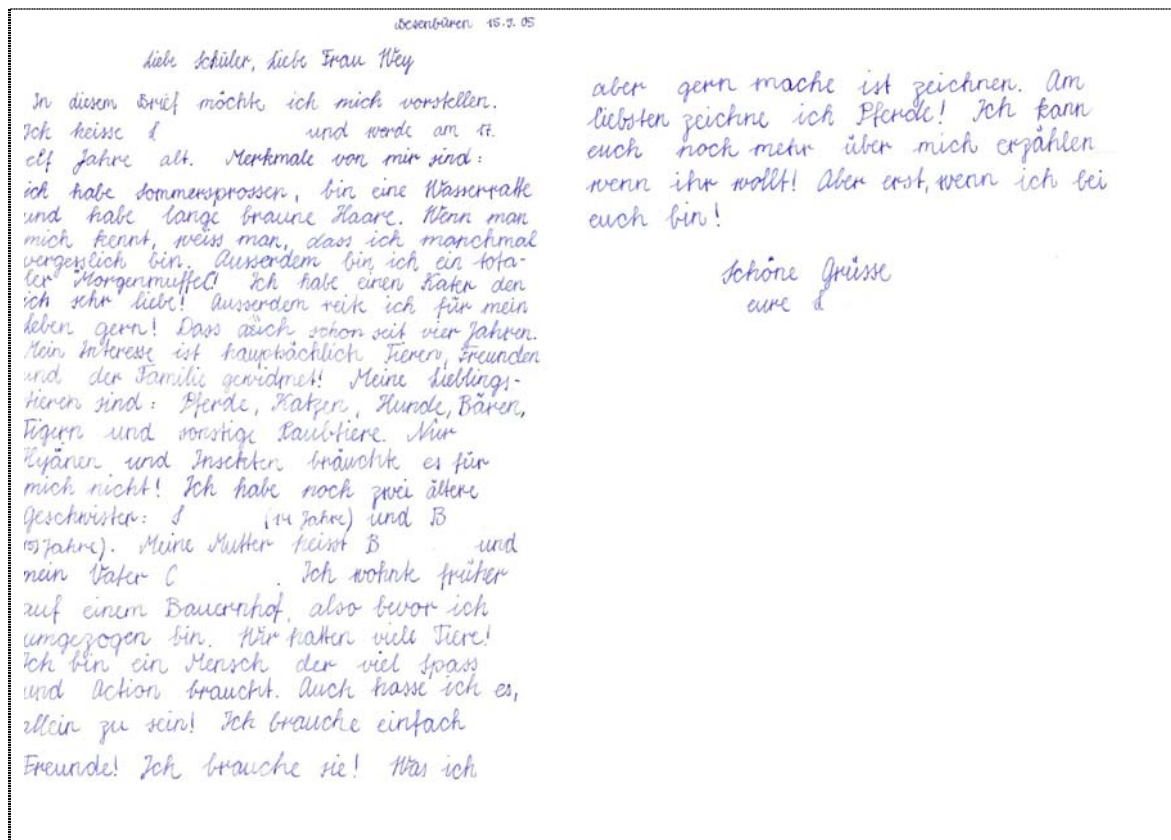 Besenbüren 15.9.05
Liebe Schüler, Liebe Frau Wey
In diesem Brief möchte ich mich vorstellen.
Ich heisse S und werde am 17.
elf Jahre alt. Merkmale von mir sind:
ich habe Sommersprossen, bin eine Wasserratte
und habe lange braune Haare. Wenn man
mich kennt, weiss man, dass ich manchmal
vergesslich bin. Ausserdem bin ich ein tota-
ler Morgenmuffel! Ich habe einen Kater den
ich sehr liebe! Ausserdem reite ich für mein
Leben gern! Dass auch schon seit vier Jahren.
Mein Interesse ist hauptsächlich Tieren, Freunden
und der Familie gewidmet! Meine Lieblings-
tieren sind: Pferde, Katzen, Hunde, Bären,
Tigern und sonstige Raubtiere. Nur
Hyänen und Insekten bräuchte es für
mich nicht! Ich habe noch zwei ältere
Geschwister: S (14 Jahre) und B
Jahre). Meine Mutter heisst B und
mein Vater C . Ich wohnte früher
auf einem Bauernhof, also bevor ich
umgezogen bin. Wir hatten viele Tiere!
Ich bin ein Mensch der viel Spass
und Action braucht. Auch hasse ich es,
allein zu sein! Ich brauche einfach
Freunde! Ich brauche sie! Was ich
aber gern mache ist zeichnen. Am
liebsten zeichne ich Pferde! Ich kann
euch noch mehr über mich erzählen
wenn ihr wollt! Aber erst, wenn ich bei
euch bin!
Schöne Grüsse
eure S